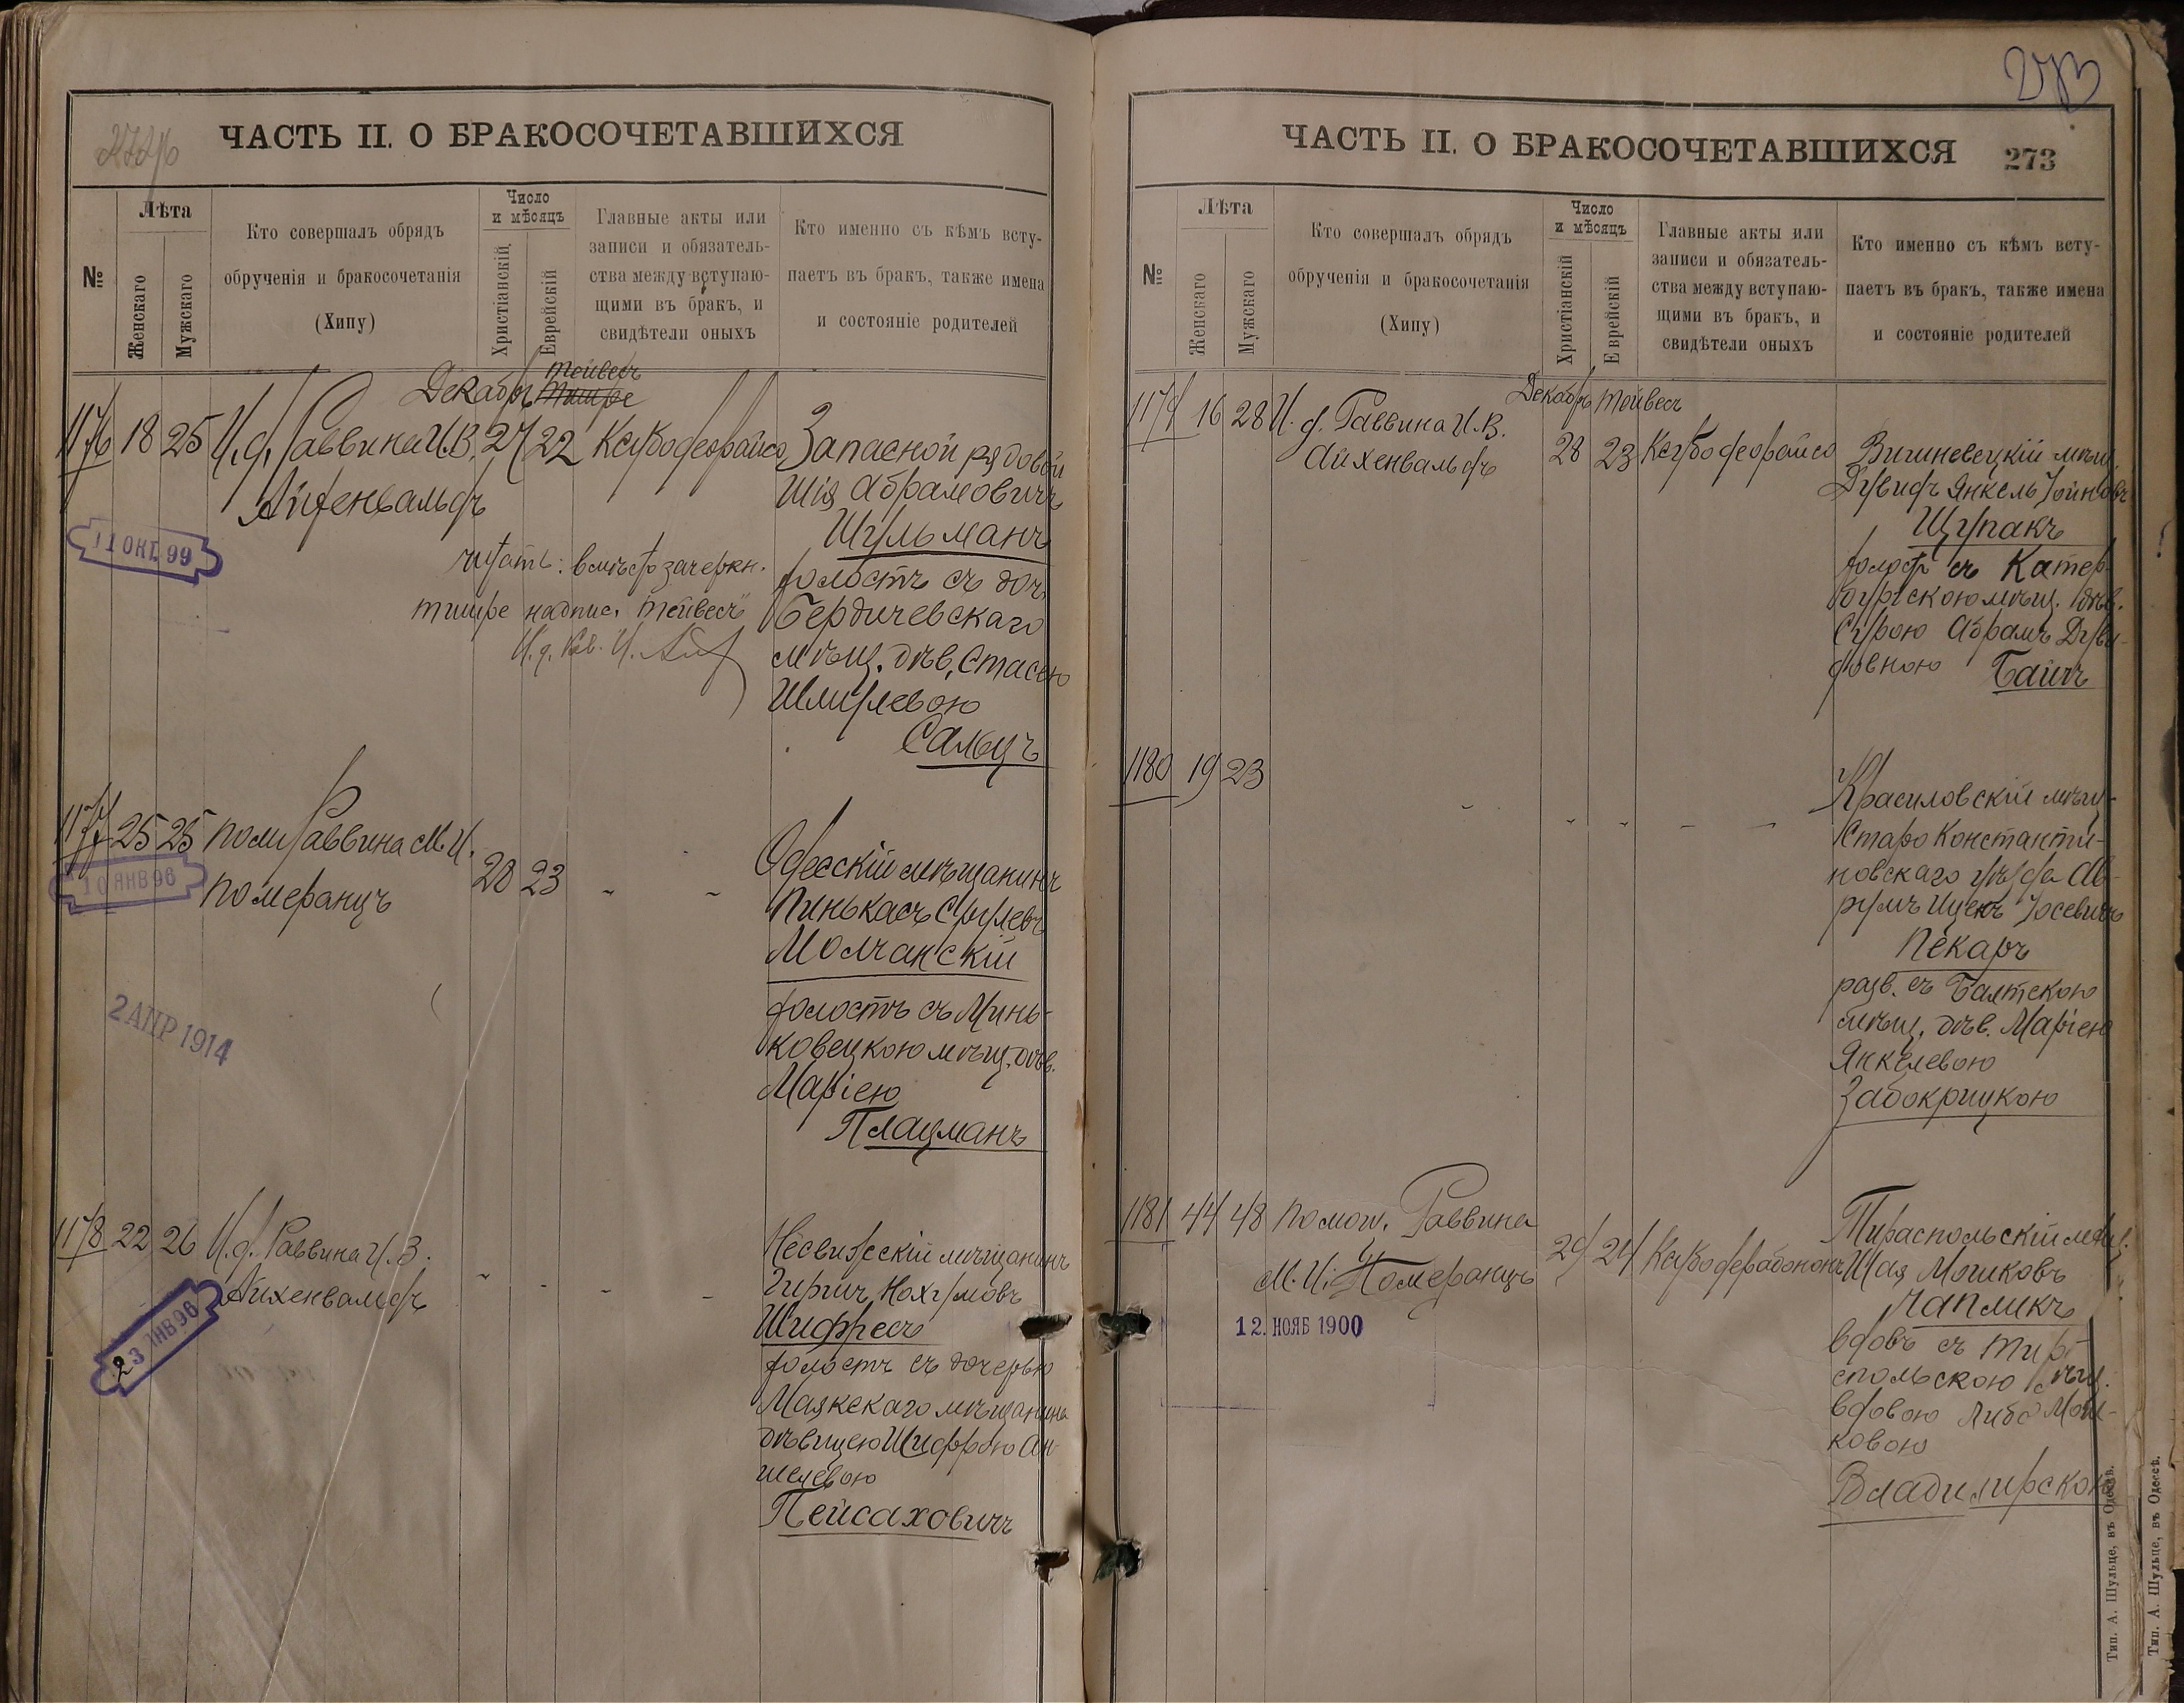 272об
ЧАСТЬ II. О БРАКОСОЧЕТАВШИХСЯ
№
Лѣта
Женскаго
Мужскаго
Кто совершалъ обрядъ
обрученія и бракосочетанія
(Хипу)
Число
и мѣсяцъ
Христіанскій
Еврейскій
Главные акты или
записи и обязатель-
ства между вступаю-
щими въ бракъ, и
свидѣтели оныхъ
Кто именно съ кѣмъ всту-
паетъ въ бракъ, также имена
и состояніе родителей
Декабрь Тейвесъ
Тишре
1176 18 25 И. д. Раввина И.В. 27 22
Айхенвальдъ
11 ОКТ. 99
Запасной рядовой
Шія Абрамовичъ
Шульманъ
холостъ съ доч.
Бердичевскаго
мѣщ. дѣв. Стасею
Шмулевою
Сальцъ
читать: вмѣсто зачеркн.
тишре надпис. "Тейвесъ"
И. д. Рав. И.
1177 25 25 Пом. Раввина М. И.
Померанцъ
28 23 - -
10 ЯНВ 96
2 АПР 1914
Одесскій мѣщанинъ
Пинькасъ Срулевъ
Молчанскій
холостъ съ Минь-
ковецкою мѣщ. дѣв.
Маріею
Плацманъ
1178 22 26 И. д. Раввина И. В.
Айхенвальдъ
- - - -
23 ЯНВ 96
Несвижскій мѣщанинъ
Гиршъ Нохумовъ
Шифресъ
холостъ съ дочерью
Маякскаго мѣщанина
дѣвицею Шифрою Ан-
шелевою
Пейсаховичъ
273
ЧАСТЬ II. О БРАКОСОЧЕТАВШИХСЯ
273
№
Лѣта
Женскаго
Мужскаго
Кто совершалъ обрядъ
обрученія и бракосочетанія
(Хипу)
Число
и мѣсяцъ
Христіанскій
Еврейскій
Главные акты или
записи и обязатель-
ства между вступаю-
щими въ бракъ, и
свидѣтели оныхъ
Кто именно съ кѣмъ всту-
паетъ въ бракъ, также имена
и состояніе родителей
Декабрь Тейвесъ
1179 16 28 И. д. Раввина И. В.
Айхенвальдъ
28 23
Вишневецкій мѣщ.
Дувидъ Янкель Іойновъ
Щупакъ
холост съ Катер-
бургскою мѣщ. дѣв.
Сурою Абрамъ Дуви-
довною Байчъ
1180 19 23
- - - - -
Красиловскій мѣщ.
Старо Константи-
новскаго уѣзда Ав-
румъ Ицекъ Іосевичъ
Пекаръ
разв. съ Балтскою
мѣщ. дѣв. Маріею
Янкелевою
Забокрицкою
1181 44 48 Помощ. Раввина
М. И. Померанцъ
29 24
12. НОЯБ 1900
Тираспольскій мѣщ.
Шая Мошковъ
Чапликъ
вдовъ съ Тира-
спольскою мѣщ.
вдовою Либо Мош-
ковою
Владимирскою
Тип. А. Шульце, въ Одессѣ.
Тип. А. Шульце, въ Одессѣ.